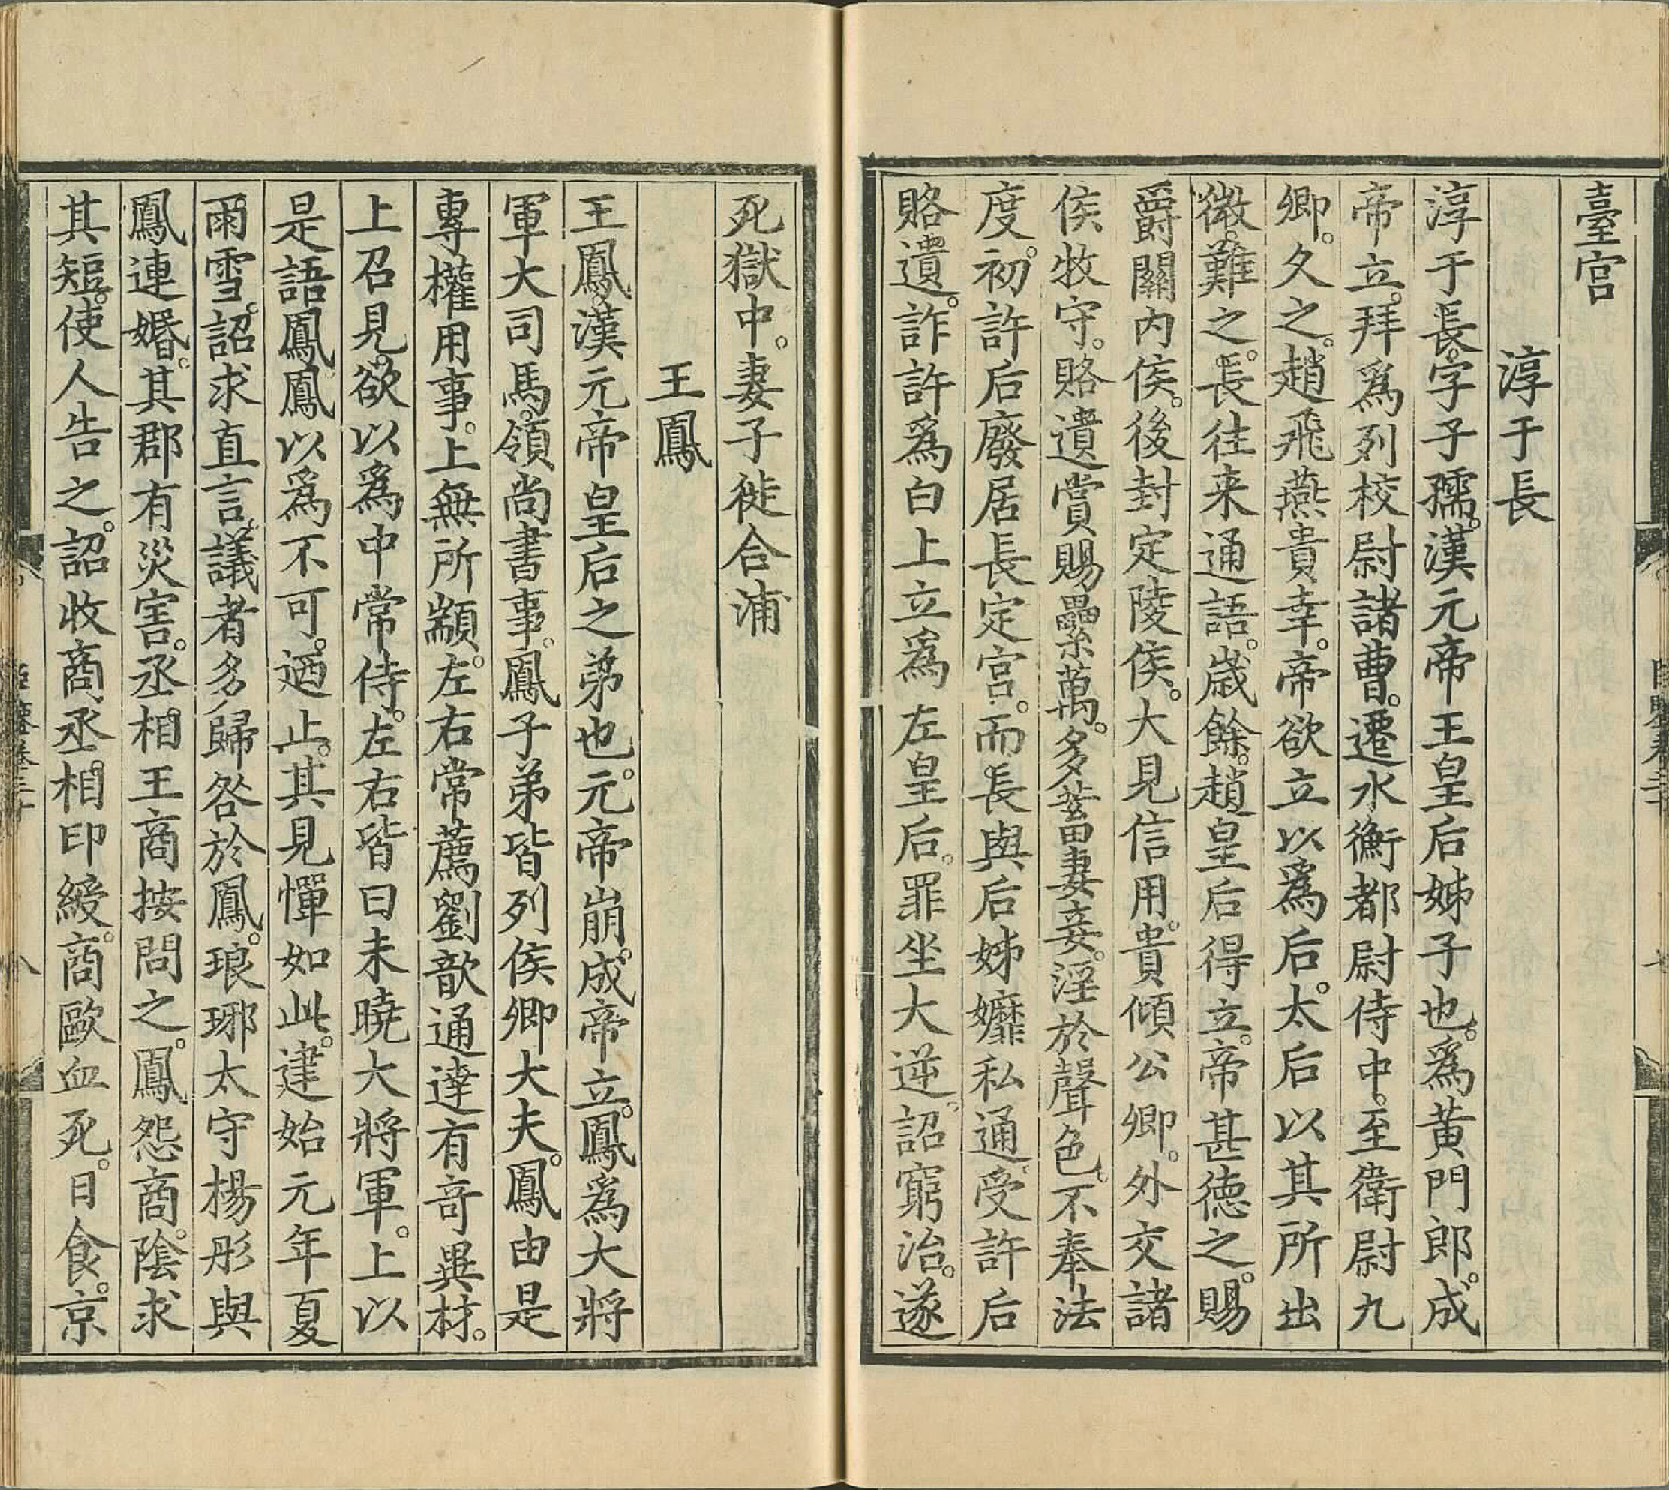 臺宮
淳于長
淳于長。字子孺。漢元帝王皇后姊子也。爲黃門郎。成
帝立。拜爲列校尉諸曹。遷水衡都尉侍中。至衛尉九
卿。久之。趙飛燕貴幸。帝欲立以爲后。太后以其所出
微。難之。長往来通語。歲餘。趙皇后得立。帝甚德之。賜
爵關内侯。後封定陵侯。大見信用。貴傾公卿。外交諸
侯牧守。賂遺賞賜纍萬。多蓄妻妾。淫於聲色。不奉法
度。初許后廢居長定宮。而長與后姊嬺私通。受許后
賂遺。詐許爲白上立爲左皇后。罪坐大逆。詔窮治。遂
死獄中。妻子徙合浦
王鳳
王鳳。漢元帝皇后之弟也。元帝崩。成帝立。鳳爲大將
軍大司馬。領尚書事。鳳子弟皆列侯卿大夫。鳳由是
專權用事。上無所顓。左右常薦劉歆通達有奇異材。
上召見。欲以爲中常侍。左右皆曰未曉大將軍。上以
是語鳳。鳳以爲不可。迺止。其見憚如此。建始元年夏
雨雪。詔求直言。議者多歸咎於鳳。琅琊太守楊彤與
鳳連婚。其郡有災害。丞相王商按問之。鳳怨商。陰求
其短。使人告之。詔收商丞相印綬。商歐血死。日食。京
八